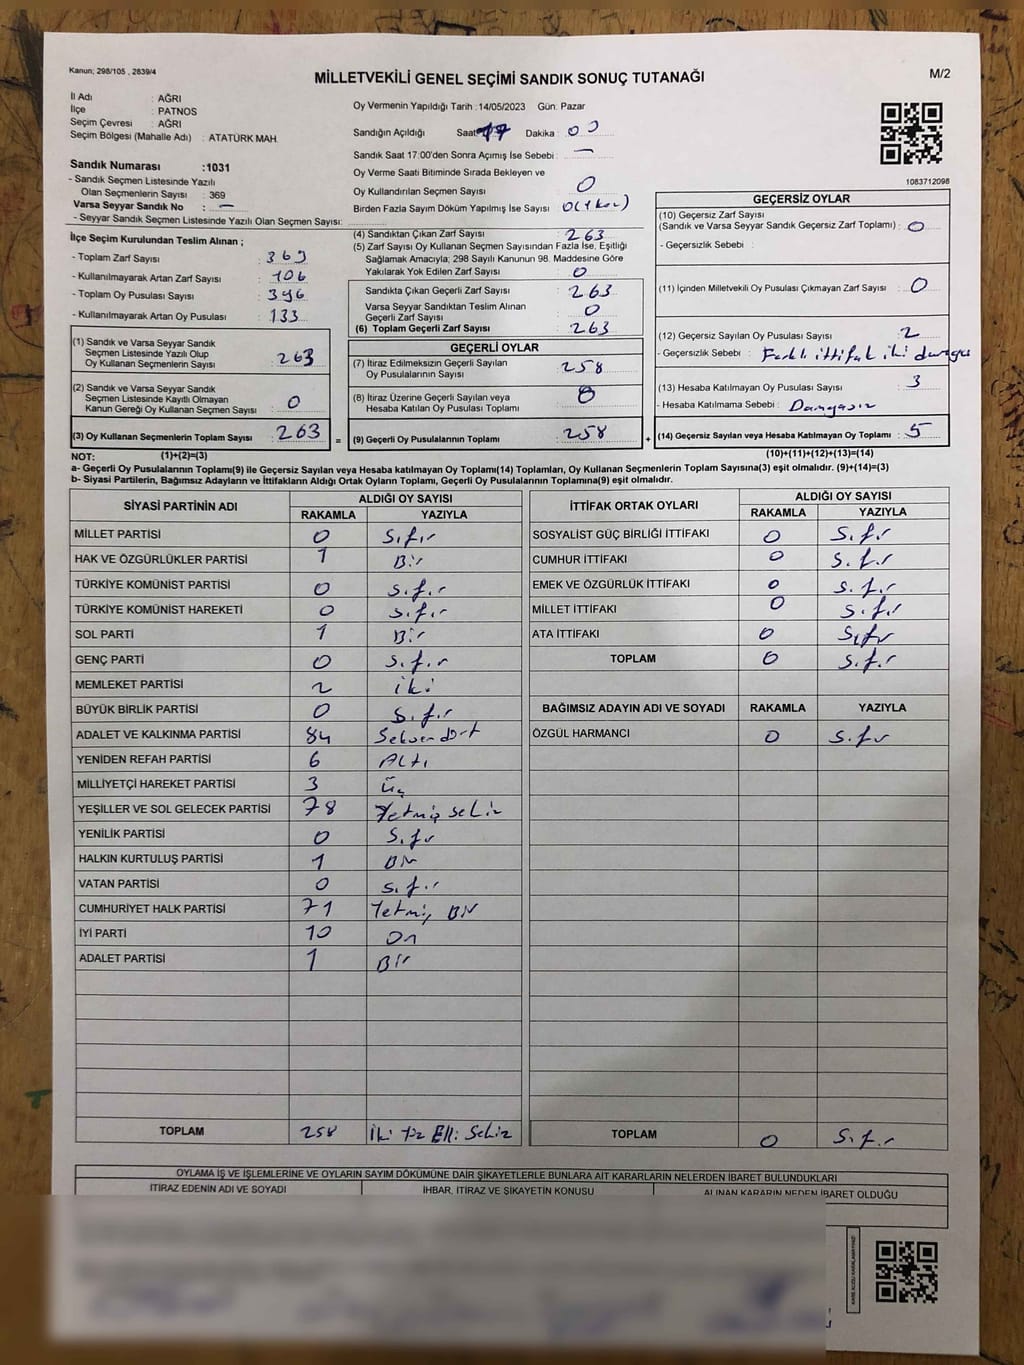 Kanun; 298/105 , 2839/4
MİLLETVEKİLİ GENEL SEÇİMİ SANDIK SONUÇ TUTANAĞI
M/2
İl Adı : AĞRI
İlçe : PATNOS
Seçim Çevresi : AĞRI
Seçim Bölgesi (Mahalle Adı) : ATATÜRK MAH.
Sandık Numarası :1031
- Sandık Seçmen Listesinde Yazılı
Olan Seçmenlerin Sayısı : 369
Varsa Seyyar Sandık No : -
- Seyyar Sandık Seçmen Listesinde Yazılı Olan Seçmen Sayısı:
Oy Vermenin Yapıldığı Tarih :14/05/2023 Gün: Pazar
Sandığın Açıldığı Saat 17 Dakika : 00
Sandık Saat 17:00'den Sonra Açımış İse Sebebi : -
Oy Verme Saati Bitiminde Sırada Bekleyen ve
Oy Kullandırılan Seçmen Sayısı : 0
Birden Fazla Sayım Döküm Yapılmış İse Sayısı : 0
1083712098
İlçe Seçim Kurulundan Teslim Alınan ;
- Toplam Zarf Sayısı : 369
- Kullanılmayarak Artan Zarf Sayısı : 106
- Toplam Oy Pusulası Sayısı : 396
- Kullanılmayarak Artan Oy Pusulası : 133
(1) Sandık ve Varsa Seyyar Sandık
Seçmen Listesinde Yazılı Olup
Oy Kullanan Seçmenlerin Sayısı : 263
(2) Sandık ve Varsa Seyyar Sandık
Seçmen Listesinde Kayıtlı Olmayan
Kanun Gereği Oy Kullanan Seçmen Sayısı : 0
(3) Oy Kullanan Seçmenlerin Toplam Sayısı : 263 =
(4) Sandıktan Çıkan Zarf Sayısı : 263
(5) Zarf Sayısı Oy Kullanan Seçmen Sayısından Fazla İse, Eşitliği
Sağlamak Amacıyla; 298 Sayılı Kanunun 98. Maddesine Göre
Yakılarak Yok Edilen Zarf Sayısı : 0
Sandıkta Çıkan Geçerli Zarf Sayısı : 263
Varsa Seyyar Sandıktan Teslim Alınan
Geçerli Zarf Sayısı : 0
(6) Toplam Geçerli Zarf Sayısı : 263
GEÇERLİ OYLAR
(7) İtiraz Edilmeksizin Geçerli Sayılan
Oy Pusulalarının Sayısı : 258
(8) İtiraz Üzerine Geçerli Sayılan veya
Hesaba Katılan Oy Pusulası Toplamı : 0
(9) Geçerli Oy Pusulalarının Toplamı : 258 +
GEÇERSİZ OYLAR
(10) Geçersiz Zarf Sayısı
(Sandık ve Varsa Seyyar Sandık Geçersiz Zarf Toplamı) : 0
- Geçersizlik Sebebi :
(11) İçinden Milletvekili Oy Pusulası Çıkmayan Zarf Sayısı : 0
(12) Geçersiz Sayılan Oy Pusulası Sayısı : 2
- Geçersizlik Sebebi : Farklı ittifak iki damga
(13) Hesaba Katılmayan Oy Pusulası Sayısı : 3
- Hesaba Katılmama Sebebi : Damgasız
(14) Geçersiz Sayılan veya Hesaba Katılmayan Oy Toplamı : 5
NOT: (1)+(2)=(3) (10)+(11)+(12)+(13)=(14)
a- Geçerli Oy Pusulalarının Toplamı(9) ile Geçersiz Sayılan veya Hesaba katılmayan Oy Toplamı(14) Toplamları, Oy Kullanan Seçmenlerin Toplam Sayısına(3) eşit olmalıdır. (9)+(14)=(3)
b- Siyasi Partilerin, Bağımsız Adayların ve İttifakların Aldığı Ortak Oyların Toplamı, Geçerli Oy Pusulalarının Toplamına(9) eşit olmalıdır.
SİYASİ PARTİNİN ADI ALDIĞI OY SAYISI
RAKAMLA YAZIYLA
MİLLET PARTİSİ 0 Sıfır
HAK VE ÖZGÜRLÜKLER PARTİSİ 1 Bir
TÜRKİYE KOMÜNİST PARTİSİ 0 Sıfır
TÜRKİYE KOMÜNİST HAREKETİ 0 Sıfır
SOL PARTİ 1 Bir
GENÇ PARTİ 0 Sıfır
MEMLEKET PARTİSİ 2 iki
BÜYÜK BİRLİK PARTİSİ 0 Sıfır
ADALET VE KALKINMA PARTİSİ 84 Seksendört
YENİDEN REFAH PARTİSİ 6 Altı
MİLLİYETÇİ HAREKET PARTİSİ 3 Üç
YEŞİLLER VE SOL GELECEK PARTİSİ 78 Yetmiş sekiz
YENİLİK PARTİSİ 0 Sıfır
HALKIN KURTULUŞ PARTİSİ 1 Bir
VATAN PARTİSİ 0 Sıfır
CUMHURİYET HALK PARTİSİ 71 Yetmiş Bir
İYİ PARTİ 10 On
ADALET PARTİSİ 1 Bir
TOPLAM 258 İki yüz Elli Sekiz
İTTİFAK ORTAK OYLARI ALDIĞI OY SAYISI
RAKAMLA YAZIYLA
SOSYALİST GÜÇ BİRLİĞİ İTTİFAKI 0 Sıfır
CUMHUR İTTİFAKI 0 Sıfır
EMEK VE ÖZGÜRLÜK İTTİFAKI 0 Sıfır
MİLLET İTTİFAKI 0 Sıfır
ATA İTTİFAKI 0 Sıfır
TOPLAM 0 Sıfır
BAĞIMSIZ ADAYIN ADI VE SOYADI RAKAMLA YAZIYLA
ÖZGÜL HARMANCI 0 Sıfır
TOPLAM 0 Sıfır
OYLAMA İŞ VE İŞLEMLERİNE VE OYLARIN SAYIM DÖKÜMÜNE DAİR ŞİKAYETLERLE BUNLARA AİT KARARLARIN NELERDEN İBARET BULUNDUKLARI
İTİRAZ EDENİN ADI VE SOYADI İHBAR, İTİRAZ VE ŞİKAYETİN KONUSU ALINAN KARARIN NEDEN İBARET OLDUĞU